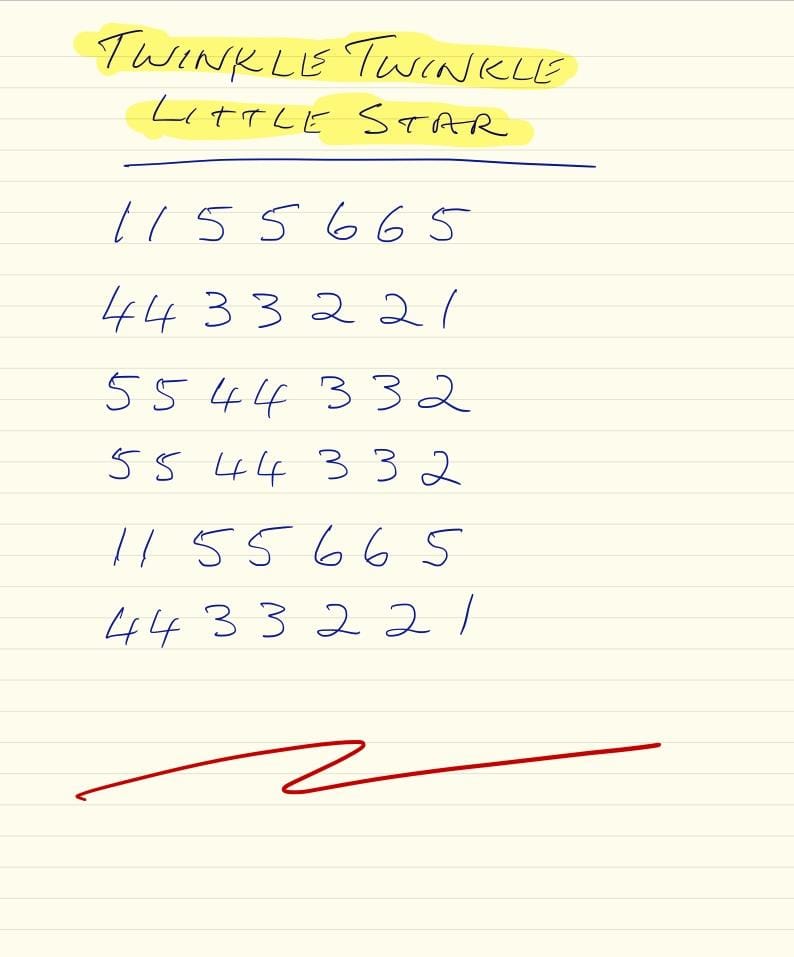 TWINKLE TWINKLE
LITTLE STAR
1 1 5 5 6 6 5
4 4 3 3 2 2 1
5 5 4 4 3 3 2
5 5 4 4 3 3 2
1 1 5 5 6 6 5
4 4 3 3 2 2 1